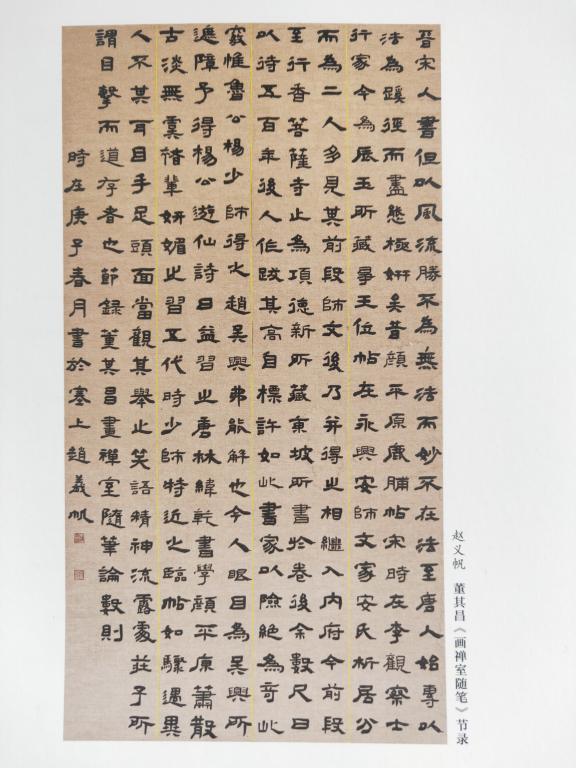 晉宋人書但以風流勝不為無法而妙不在法至唐人始專以
法為蹊徑而盡態極妍矣昔顏平原鹿脯帖宋時在李觀察士
行家今為辰玉所藏尋王位帖在永興安師文家安氏析居分
而為二人多見其前段師文後乃并得之相繼入內府今前段
至行香菩薩寺止為項德新所藏東坡所書於卷後余數尺曰
以待五百年後人作跋其高自標許如此書家以險絕為奇此
竅惟魯公楊少師得之趙吳興弗能解也今人眼目為吳興所
遮障予得楊公遊仙詩日益習之唐林緯乾書學顏平原蕭散
古淡無虞褚輩妍媚之習五代時少師特近之臨帖如驟遇異
人不其耳目手足頭面當觀其舉止笑語精神流露處莊子所
謂目擊而道存者也節錄董其昌畫禪室隨筆論數則
時在庚子春月書於塞上趙義帆
赵义帆 董其昌《画禅室随笔》节录